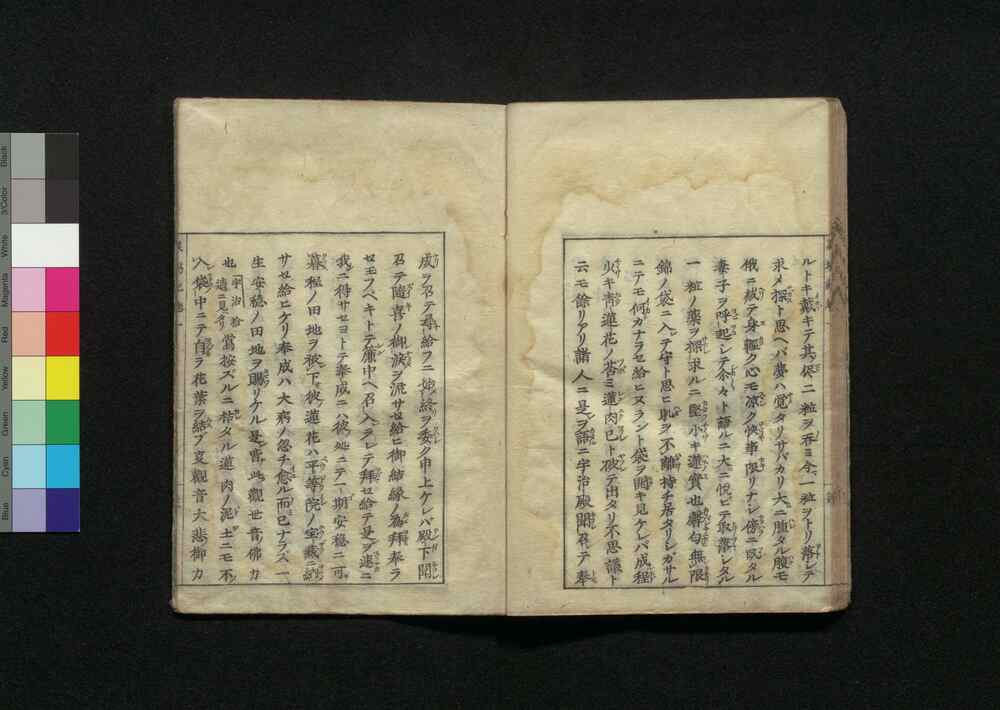 ルトキ戴キテ其侭二粒ヲ呑ミ今一粒ヲトリ落シテ
求メ探ト思ヘバ夢ハ覚タリサバカリ大ニ腫タル腹モ
俄ニ減テ身軽ク心モ凉ク喚事限リナシ傍ニ臥タル
妻子ヲ呼起シテ尓々ト語ルニ大ニ悦ビテ取落シタル
一粒ノ薬ヲ探求ルニ堅小キ蓮實也馨匂無限
錦ノ袋ニ入テ守ト思ヒ肌ヲ不離持チ居タリシガサル
ニテモ何カナラセ給ヒヌラント袋ヲ時キ見ケレバ成程
少キ青蓮花ノ莟ミ蓮肉已ト破テ出タリ不思議ト
云モ餘リアリ諸人ニ是ヲ語ニ宇治殿聞召テ奉
成ヲ召テ尋給フニ始終ヲ委ク申上ケレバ殿下聞
召テ隨喜ノ御涙ヲ流サセ給ヒ御結縁ノ為拜奉ラ
セ玉フベキトテ簾中ヘ召入ラレテ拜セ給テ是ヲ速ニ
我ニ得サセヨトテ奉成ニハ彼処ニテ一期安穏ニ可
暮程ノ田地ヲ被下彼蓮花ハ平等院ノ宝蔵ニ
サセ給ヒケリ奉成ハ大病ノ忽チ愈ル而已ナラズ一
生安穏ノ田地ヲ賜リケル是ハ此觀世音佛力
也宇治拾遺ニ見タリ當按ズルニ枯タル蓮肉ノ泥土ニモ不
入袋中ニテ自ラ花葉ヲ結ブ夏觀音大悲御カ
Black
3/Color
White
Magenta
Red
Yellow
Green
Cyan
Blue